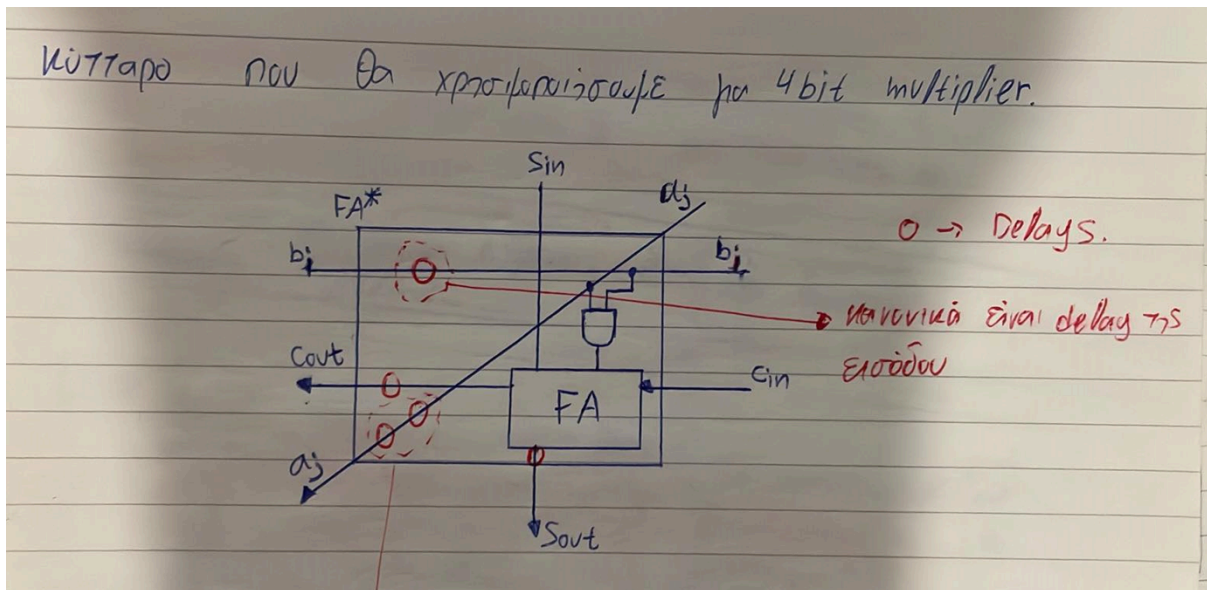 κύτταρο που θα χρησιμοποιήσουμε για 4bit multiplier.
Sin
FA*
aj
bj
bj
O → Delays.
κανονικά είναι delay της
εισόδου
Cout
Cin
FA
aj
Sout